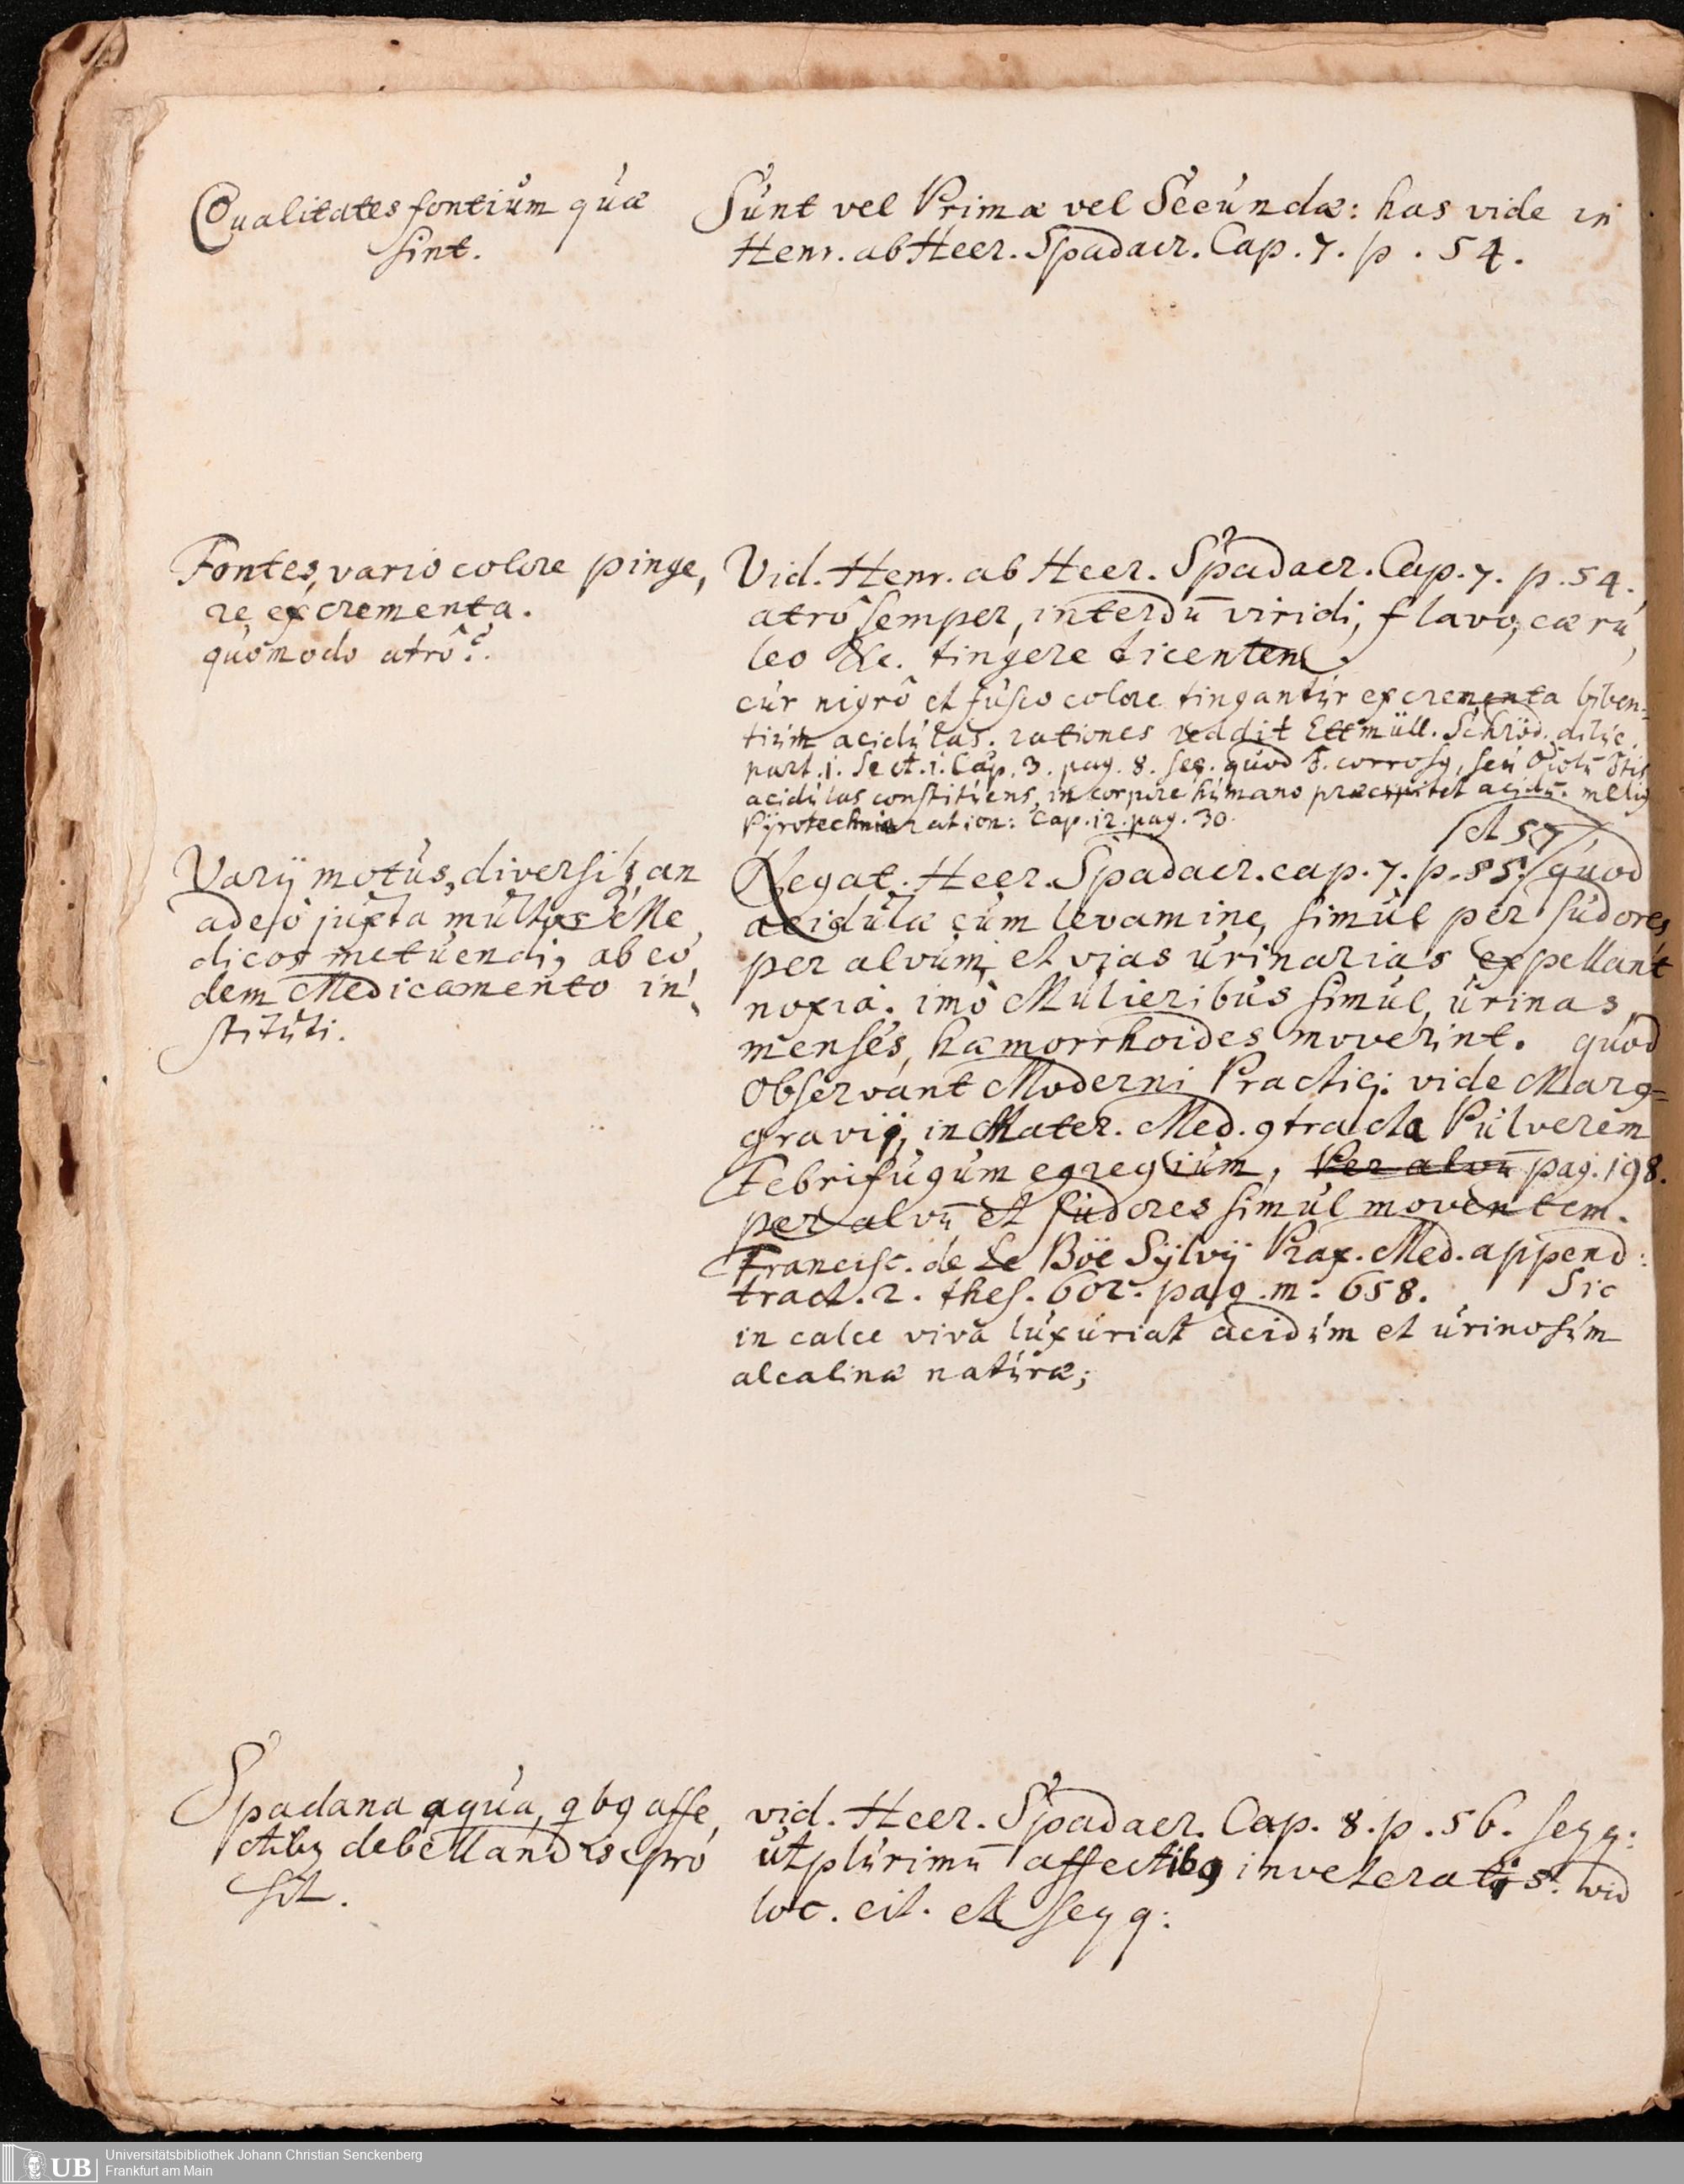 Qualitates fontium quæ
sint.
Sunt vel Primæ vel Secundæ: has vide in
Henr. ab Heer. Spadacr. Cap. 7. p. 54.
Fontes, vario colore pinge,
re excrementa.
quomodo atrô?
Vid. Henr. ab Heer. Spadacr. Cap. 7. p. 54.
atrô semper, interdū viridi, flavo, cæru,
leo &c. tingere dicentem.
cur nigrô et fusco colore tingantur excrementa biben-
tium acidulas. rationes reddit Ettmüll. Schröd. diluc.
part. 1. Sect. 1. Cap. 3. pag. 8. seq. quod corrosq, seu
acidulas constituens, in corpore humano præcipitet acidū. meliq
Pyrotechniæ ration: Cap. 12. pag. 30.
Varij motus, diversi, an
adeo juxta multos Me,
dicos metuendi, ab eo,
dem Medicamento in,
stituti.
et 57
Negat. Heer. Spadacr. cap. 7. p. 55. quod
acidulæ cum levamine, simul per sudores
per alvum, et vias urinarias expellant
noxia. imò Mulieribus simul, urinas,
menses, hæmorrhoides moverint. quod
Observant Moderni Practici: vide Marg=
gravij, in Mater. Med. 9tracta Pulverem
Febrifugum egregium, Per alvū pag. 198.
per alvū et sudores simul moventem.
Francisc. de Le Böe Sylvij Prax. Med. append:
tract. 2. thes. 602. pag. m. 658. Sic
in calce vivâ luxuriat acidum et urinosum
alcalinæ naturæ;
Spadana aqua, qbq affe,
ctibq debellandis pro
sit.
vid. Heer. Spadacr. Cap. 8. p. 56. seqq:
ut plurimū affectibq inveteratis. vid
loc. cit. et seqq:
Universitätsbibliothek Johann Christian Senckenberg
Frankfurt am Main
UB